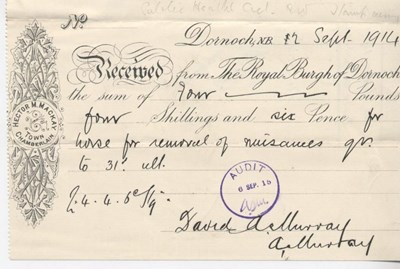 Public Health Act
No
Dornoch, N.B. 12 Sept. 1914
Received from The Royal Burgh of Dornoch
the sum of Four Pounds
four Shillings and six Pence for
horse for removal of nuisances
to 31st ult.
£4.4.6
David A. Murray
A. Murray
HECTOR M. MACKAY
TOWN
CHAMBERLAIN
AUDIT
6 SEP. 15